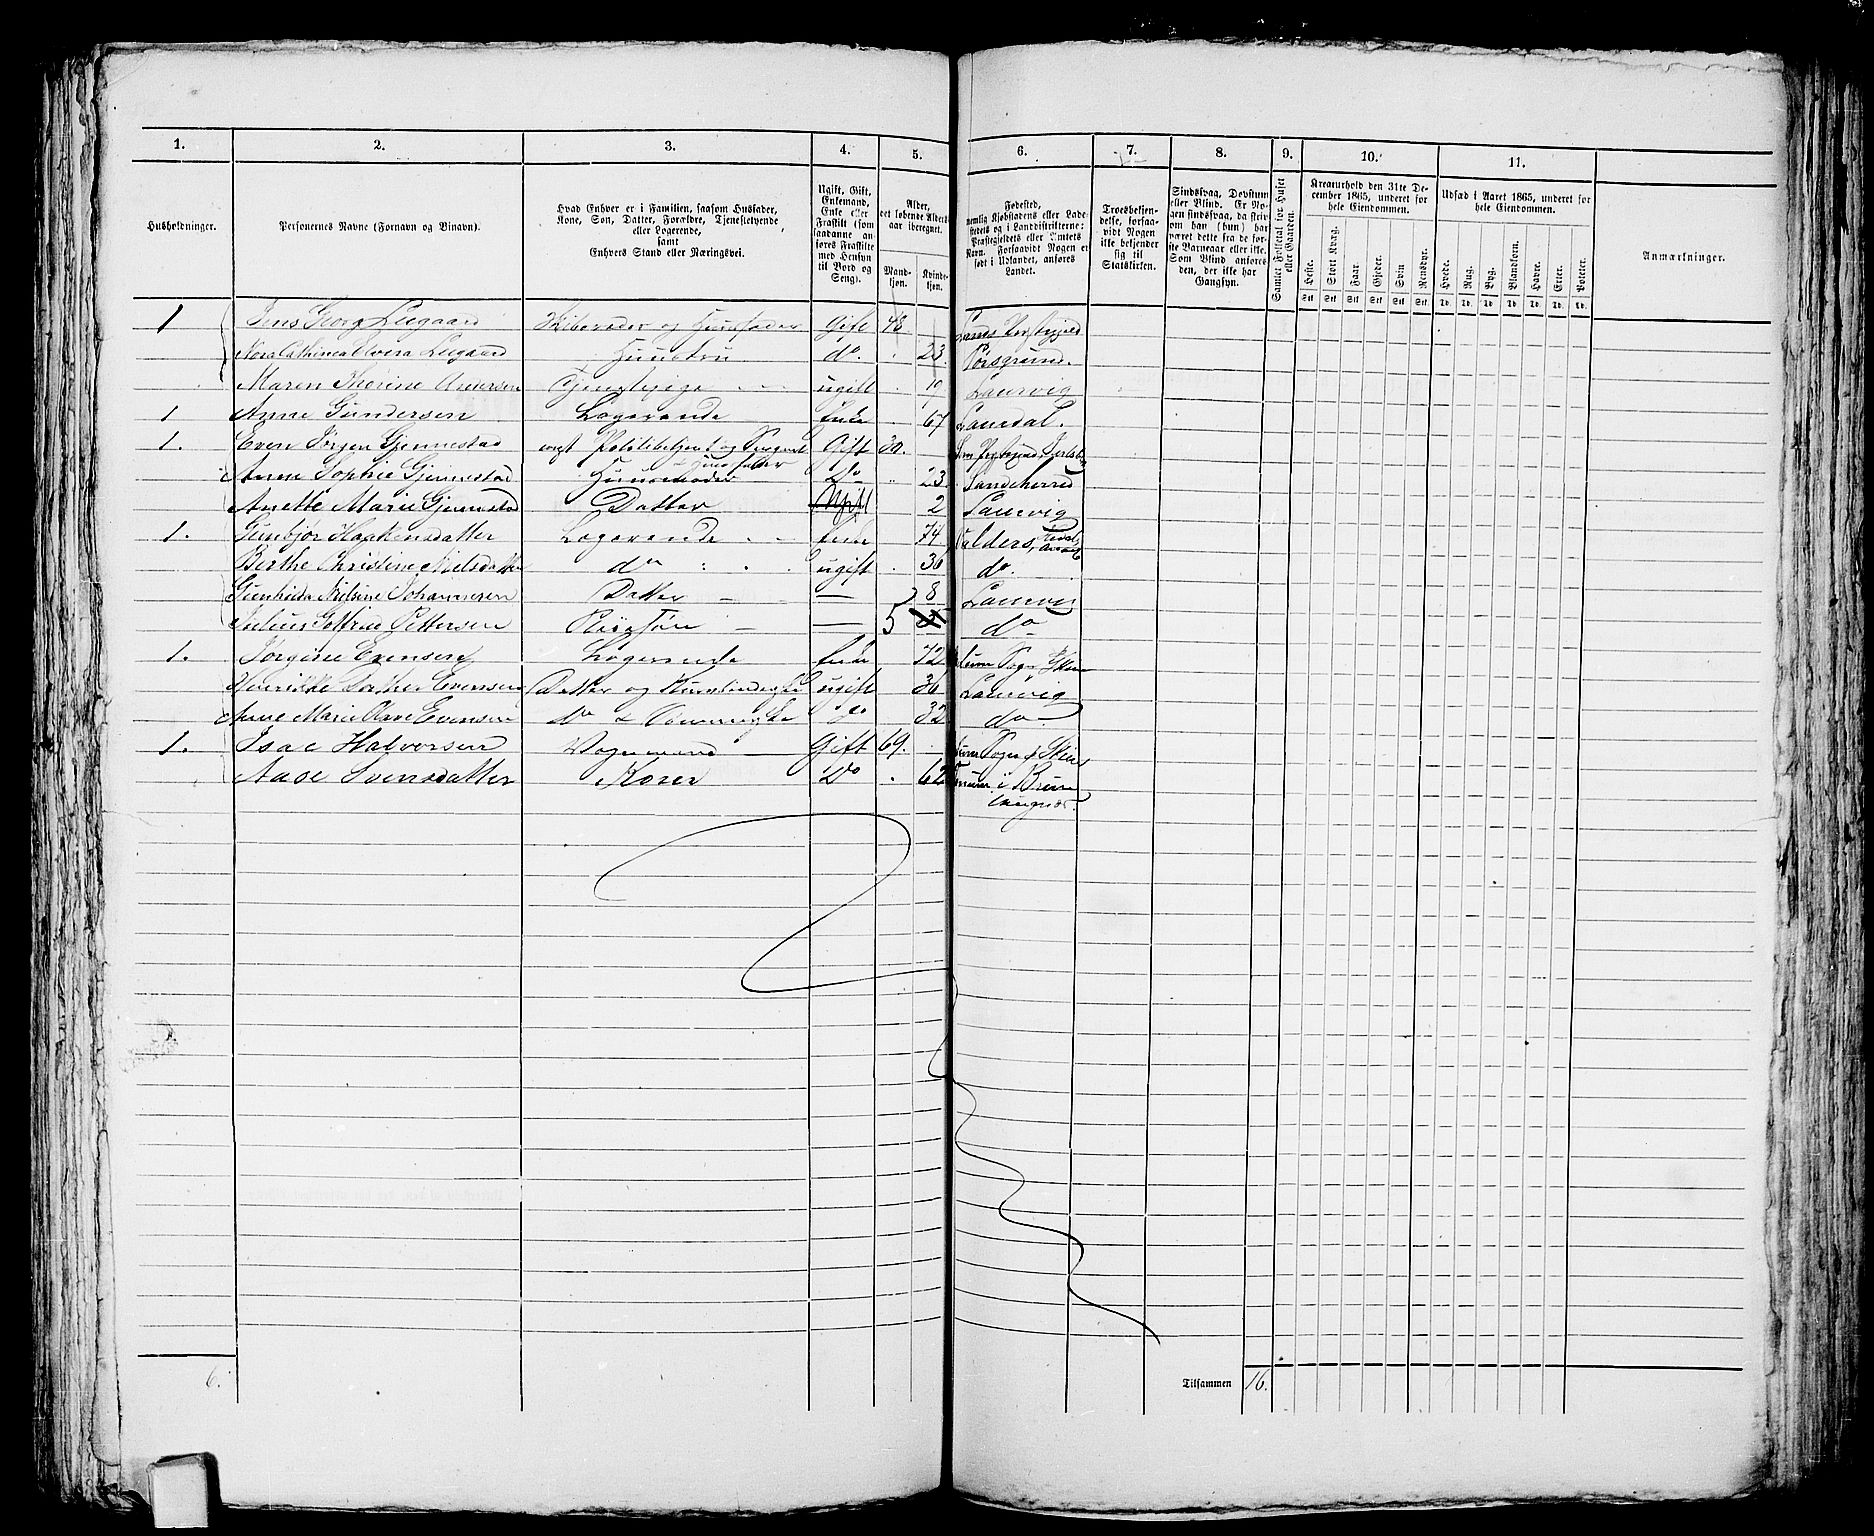 1. 2. 3. 4. 5. 6. 7. 8. 9. 10. 11.
Husholdninger.
Personernes Navne (Fornavn og Binavn).
Hvad Enhver er i Familien, saasom Husfader,
Kone, Søn, Datter, Forældre, Tjenestetyende
eller Logerende,
samt
Enhvers Stand eller Næringsvei.
Ugift, Gift,
Enkemand,
Enke eller
Fraskilt (som
saadanne an-
føres Fraskilte
med Hensyn
til Bord og
Seng).
Alder,
det løbende Alders-
aar iberegnet.
Mand-
kjøn.
Kvinde-
kjøn.
Fødested,
nemlig Kjøbstadens eller Lade-
stedets og i Landdistrikterne:
Præstegjeldets eller Amtets
Navn. Forsaavidt Nogen er
født i Udlandet, anføres
Landet.
Troesbekjen-
delse, forsaa-
vidt Nogen
ikke bekjender
sig til
Statskirken.
Sindssvag, Døvstum
eller Blind. Er No-
gen sindssvag, da skriv
om han (hun) har
været dette fra de før-
ste Barneaar eller ikke.
Som Blind anføres
den, der ikke har
Gangsyn.
Gamlet Folketal for Huset
eller Gaarden.
Kreaturhold den 31te De-
cember 1865, underet for
hele Eiendommen.
Heste. Stort Kvæg. Faar. Gjeder. Svin Rensdyr.
Stk Stk Stk Stk Stk Stk
Udsæd i Aaret 1865, underet for
hele Eiendommen.
Hvede. Rug. Byg. Blandkorn. Havre. Erter. Poteter.
Td. Td. Td. Td. Td. Td. Td.
Anmærkninger.
1 Jens Georg Leegaard og Huusfader Gift 48
Leegaard Huustru do. 23. Porsgrund.
Maren Andersen Tjenestepige ugift 19 Laurvig
1 Anne Gundersen Logerende Enke 67 Laurdal.
1. Even Jørgen Gjennestad Politibetjent og Gift 30.
Huusfader
Anne Sophie Gjennestad Huusmoder Do 23 Sandeherred
Anette Marie Gjennestad Datter Ugift 2 Laurvig
1. Gunbjør Haakensdatter Logerende Enke 74 Valders,
Berthe Christine Nielsdatter do ugift 36 do.
Gunhilde Nielsine Johannesen Datter — 8 Laurvig
Julius Gotfried Pettersen Pleiesøn — 5 do
1. Jørgine Evensen Logerende Enke 72 Sogn Skien
Evensen Datter og ugift 36 Laurvig
Anne Marie Olave Evensen do do 32 do
1. Isac Halvorsen Vognmand Gift 69. Sogn Skien
Aase Svensdatter Kone Do 62 i Brun-
laugnæs.
6.
Tilsammen 16.